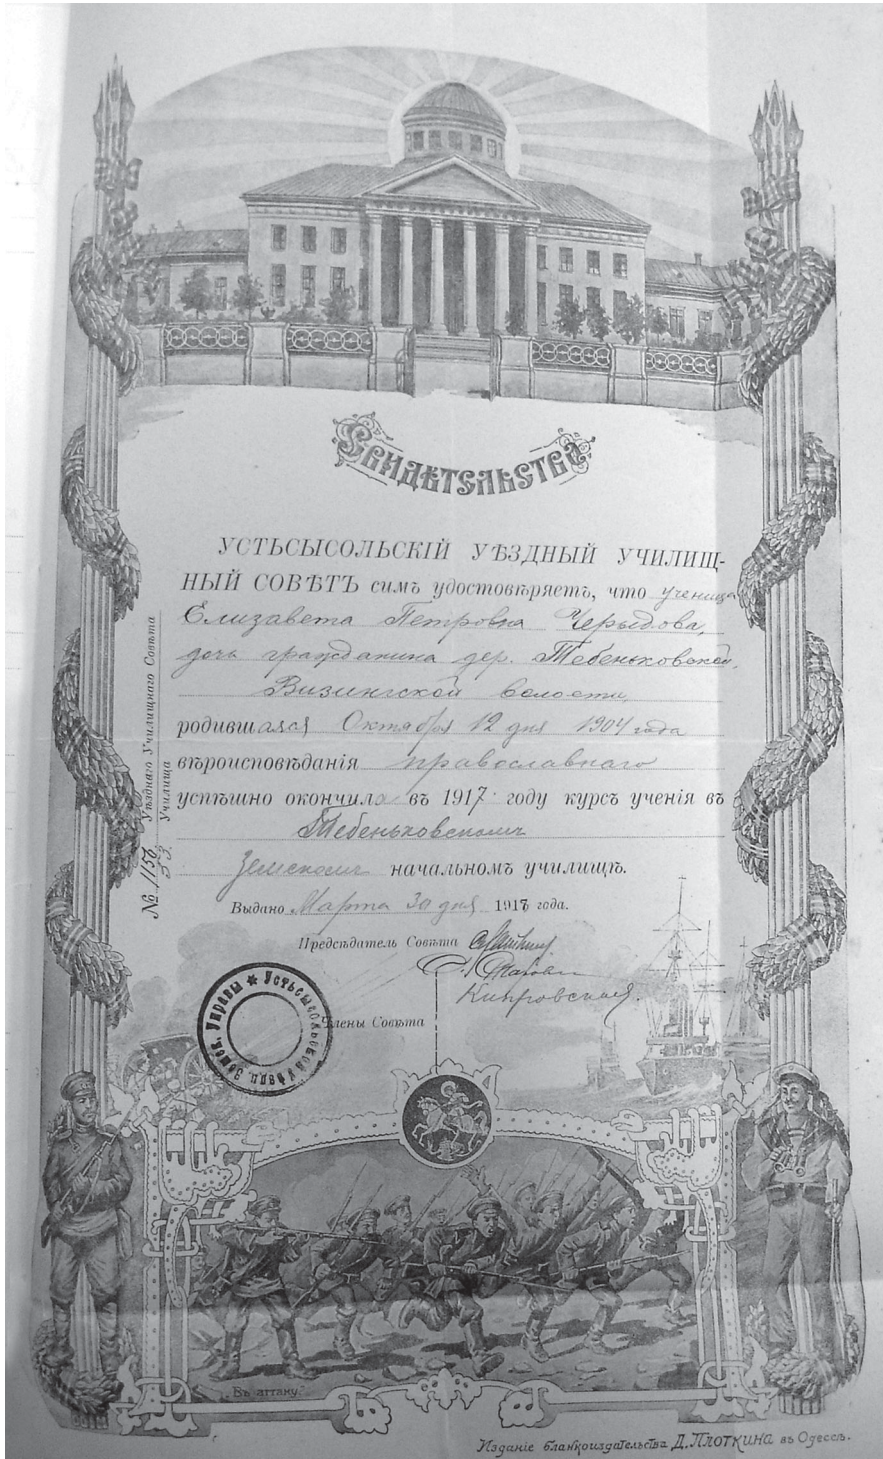 Свидѣтельство
УСТЬСЫСОЛЬСКІЙ УѢЗДНЫЙ УЧИЛИЩ-
НЫЙ СОВѢТЪ симъ удостовѣряетъ, что ученица
Елизавета Петровна Черыдова,
дочь гражданина дер. Тебеньковской,
Визингской волости,
родившаяся Октября 12 дня 1904 года
вѣроисповѣданія православнаго
успѣшно окончила въ 1917 году курсъ ученія въ
Тебеньковскомъ
Земскомъ начальномъ училищѣ.
Выдано Марта 30 дня 1917 года.
Предсѣдатель Совѣта
Кипровская.
Члены Совѣта
Уѣзднаго Училищнаго Совѣта
Училища
№ 1156
53
Устьсысольской Уѣздн. Земск. Управы
„Въ аттаку."
Изданіе бланкоиздательства Д. Плоткина въ Одессѣ.